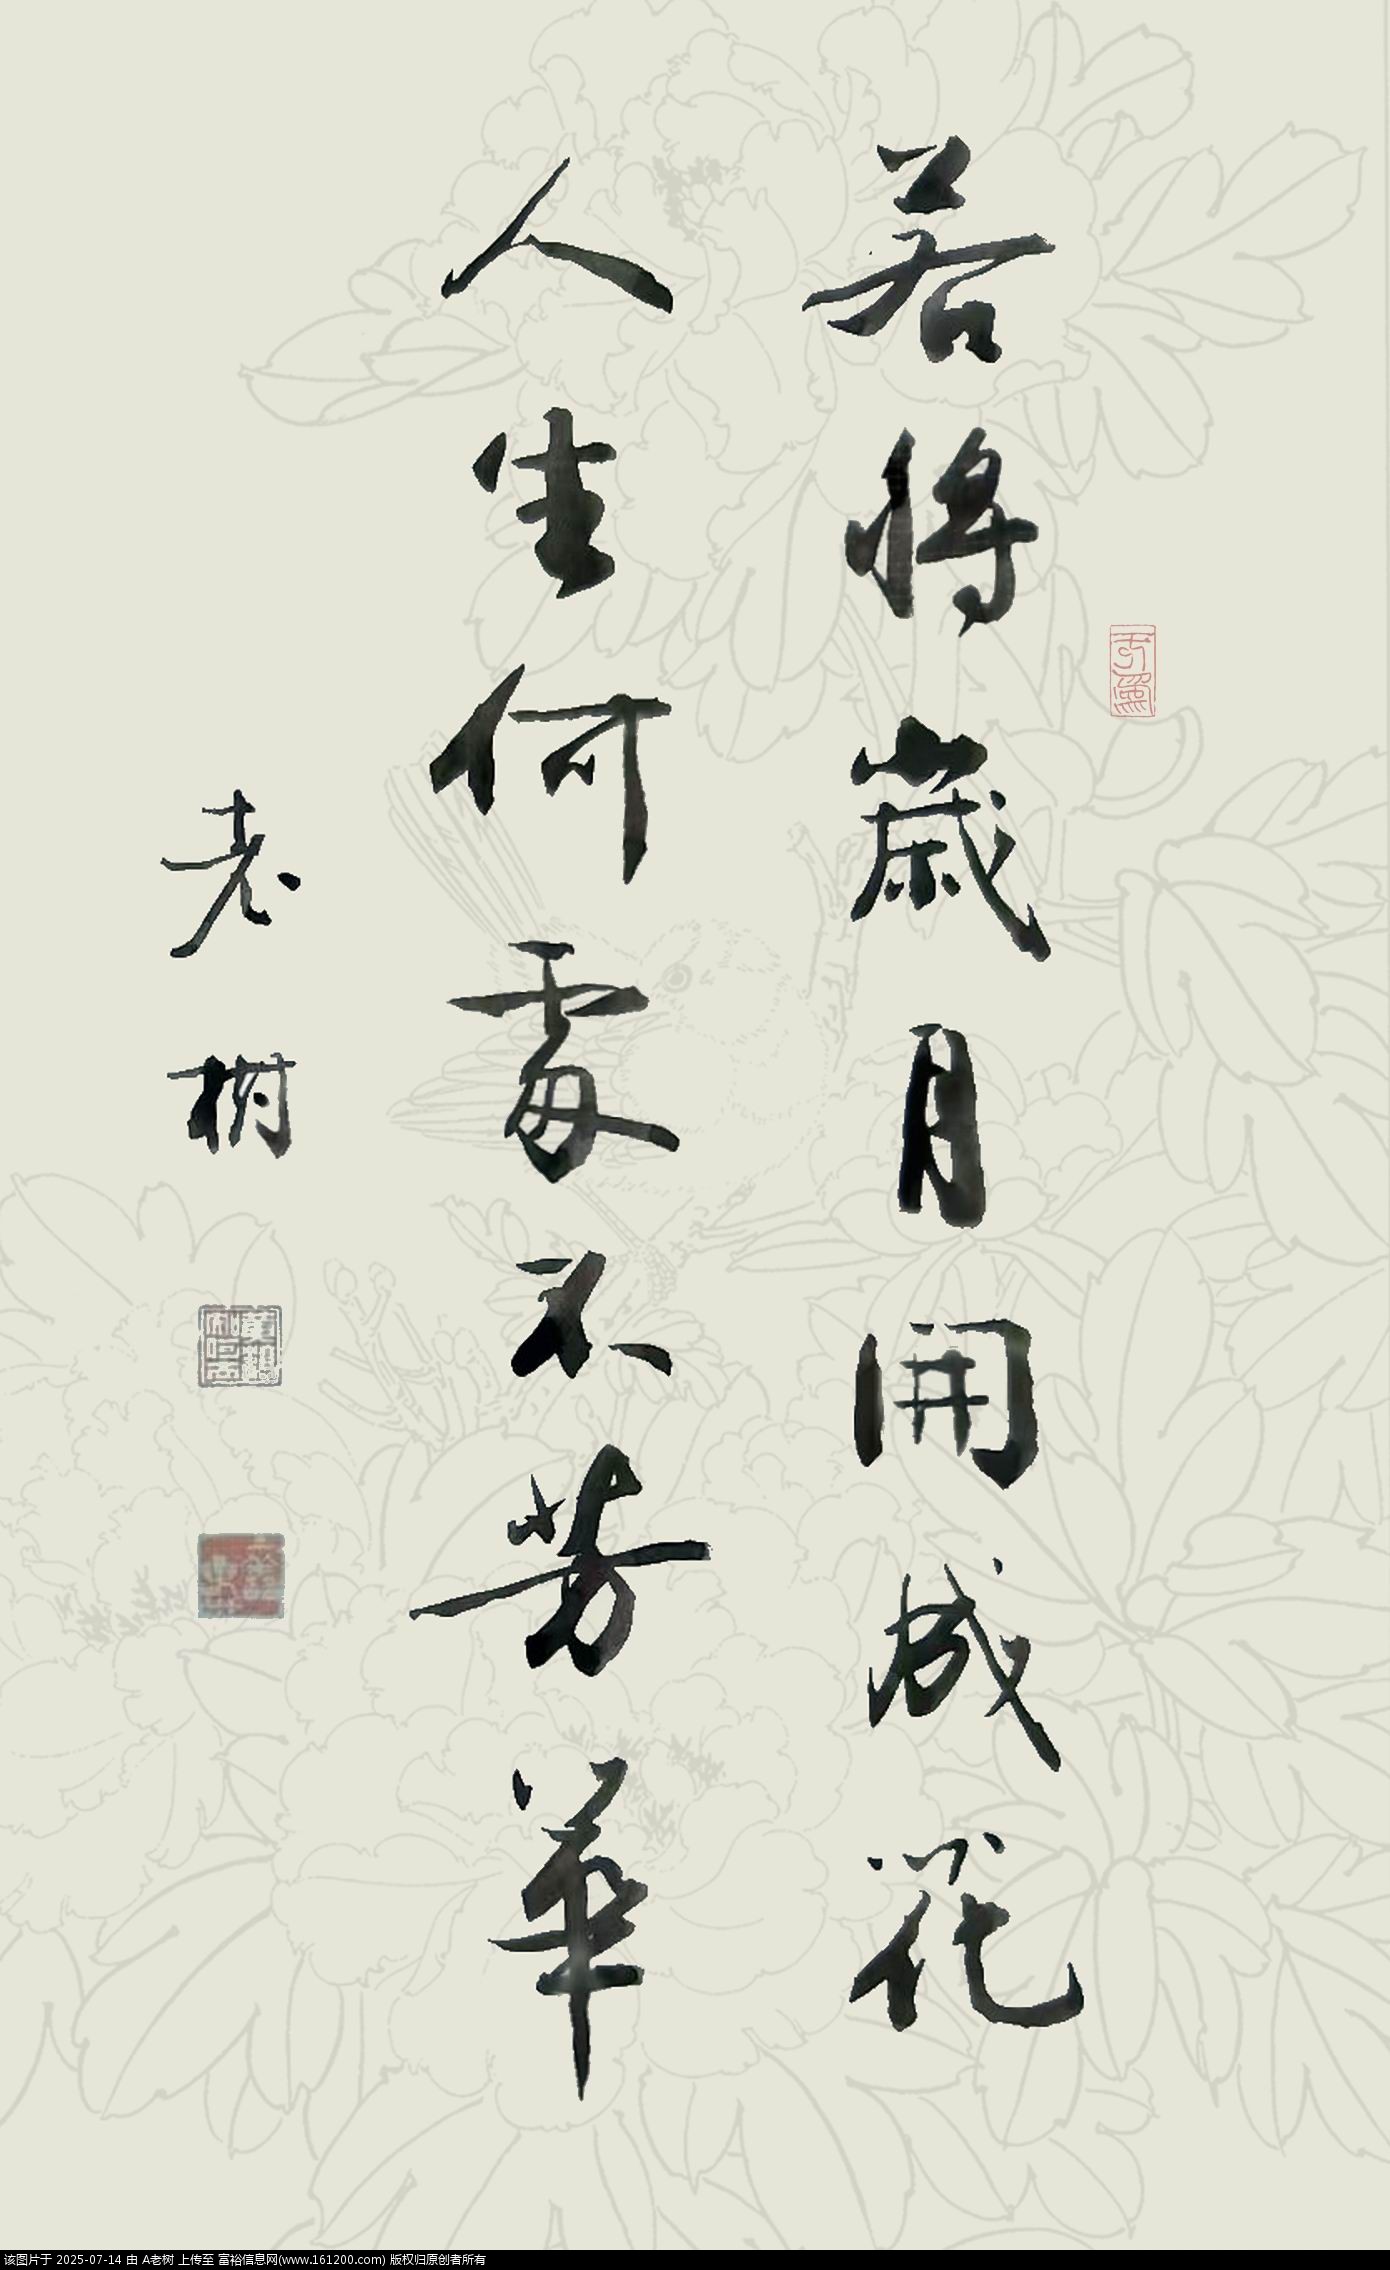 若將歲月開成花
人生何處不芳華
老樹
该图片于 2025-07-14 由 A老树 上传至 富裕信息网(www.161200.com) 版权归原创者所有